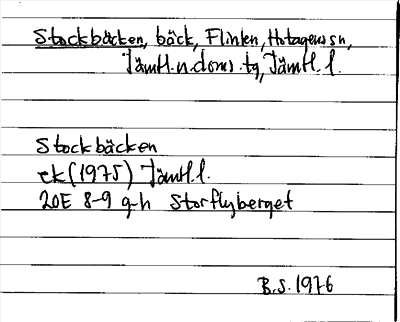 Stockbäcken, bäck, Flinten, Hotagens sn,
Jämtl. n. doms. tg, Jämtl. l.
Stockbäcken
ek (1975) Jämtl. l.
20E 8-9 g-h Storflyberget
B.S. 1976